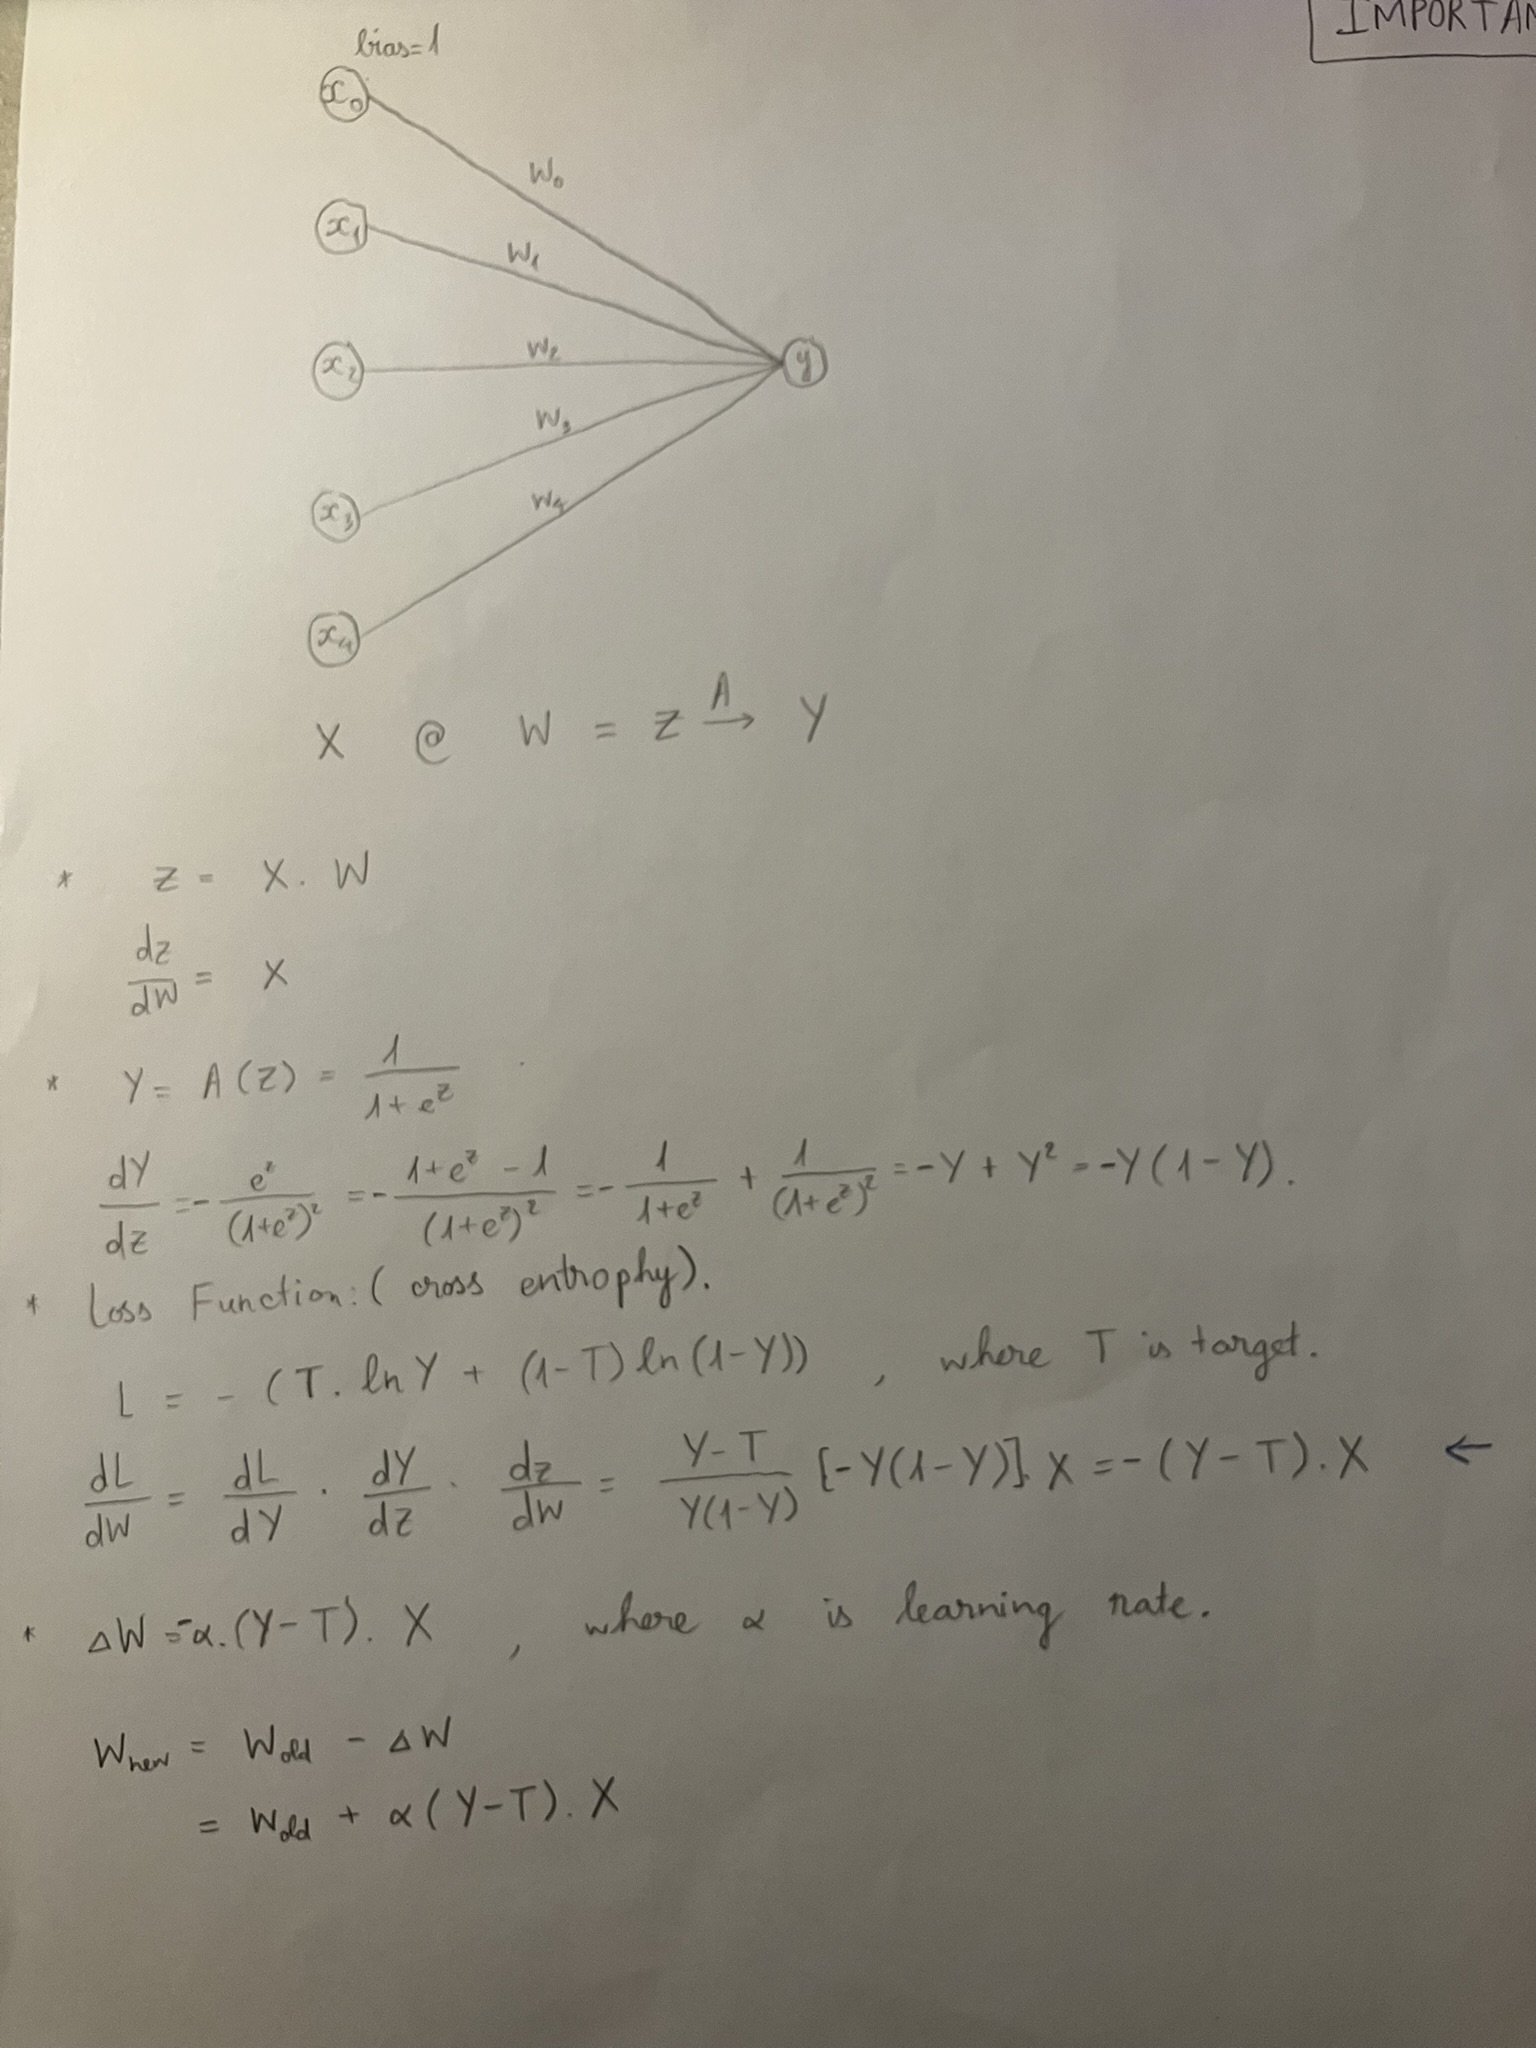 IMPORTAN
bias=1
x₀
W₀
x₁
W₁
x₂
W₂
y
W₃
x₃
W₄
x₄
X @ W = Z →ᴬ Y
* Z = X. W
dz/dW = X
* Y = A(Z) = 1/(1+e^z)
dY/dz = - e^z/(1+e^z)² = - (1+e^z - 1)/(1+e^z)² = - 1/(1+e^z) + 1/(1+e^z)² = -Y + Y² = -Y(1-Y).
* Loss Function: ( cross entrophy).
L = - (T. ln Y + (1-T) ln (1-Y)) , where T is target.
dL/dW = dL/dY . dY/dz . dz/dW = (Y-T)/(Y(1-Y)) [-Y(1-Y)]. X = -(Y-T). X ←
* ΔW = -α.(Y-T). X , where α is learning rate.
W_new = W_old - ΔW
= W_old + α(Y-T). X